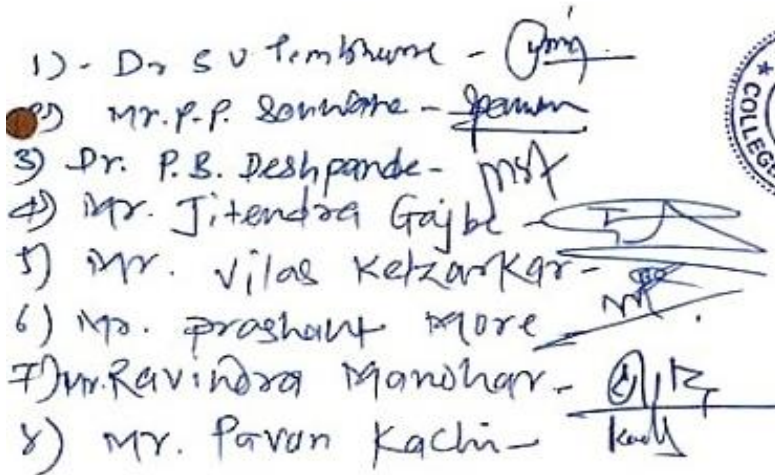 1) - Dr S V Tembhurne -
2) Mr. P.P. Sonwane -
3) Dr. P.B. Deshpande -
4) Mr. Jitendra Gajbe -
5) Mr. Vilas Ketzarkar -
6) Mr. Prashant More
7) Mr. Ravindra Manohar -
8) Mr. Pavan Kachi -
COLLEGE